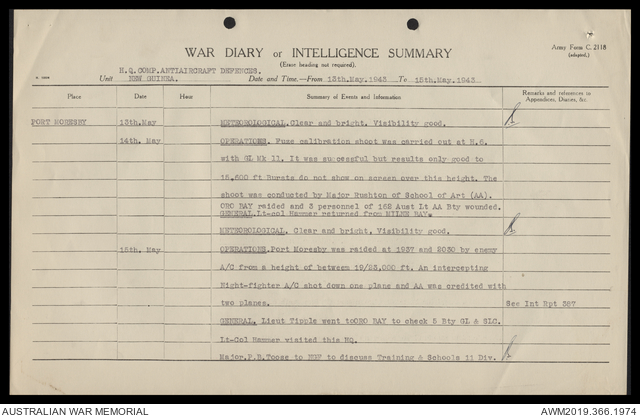 Army Form C. 2118
(adapted.)
WAR DIARY or INTELLIGENCE SUMMARY
(Erase heading not required).
H.Q.COMP.ANTIAIRCRAFT DEFENCES.
Unit NEW GUINEA. Date and Time.—From 13th.May.1943 To 15th.May.1943
Place Date Hour Summary of Events and Information Remarks and references to Appendices, Diaries, &c.
PORT MORESBY 13th.May METEOROLOGICAL.Clear and bright. Visibility good.
14th. May OPERATIONS. Fuse calibration shoot was carried out at H.6.
with GL Mk 11. It was successful but results only good to
15,600 ft Bursts do not show on screen over this height. The
shoot was conducted by Major Rushton of School of Art (AA).
ORO BAY raided and 3 personnel of 162 Aust Lt AA Bty wounded.
GENERAL.Lt-col Hammer returned from MILNE BAY.
METEOROLOGICAL. Clear and bright. Visibility good.
15th. May OPERATIONS.Port Moresby was raided at 1937 and 2030 by enemy
A/C from a height of betweem 19/23,000 ft. An intercepting
Night-fighter A/C shot down one plane and AA was credited with
two planes. See Int Rpt 387
GENERAL. Lieut Tipple went toORO BAY to check 5 Bty GL & SLC.
Lt-Col Hammer visited this HQ.
Major.P.B.Toose to NGF to discuss Training & Schools 11 Div.
AUSTRALIAN WAR MEMORIAL
AWM2019.366.1974